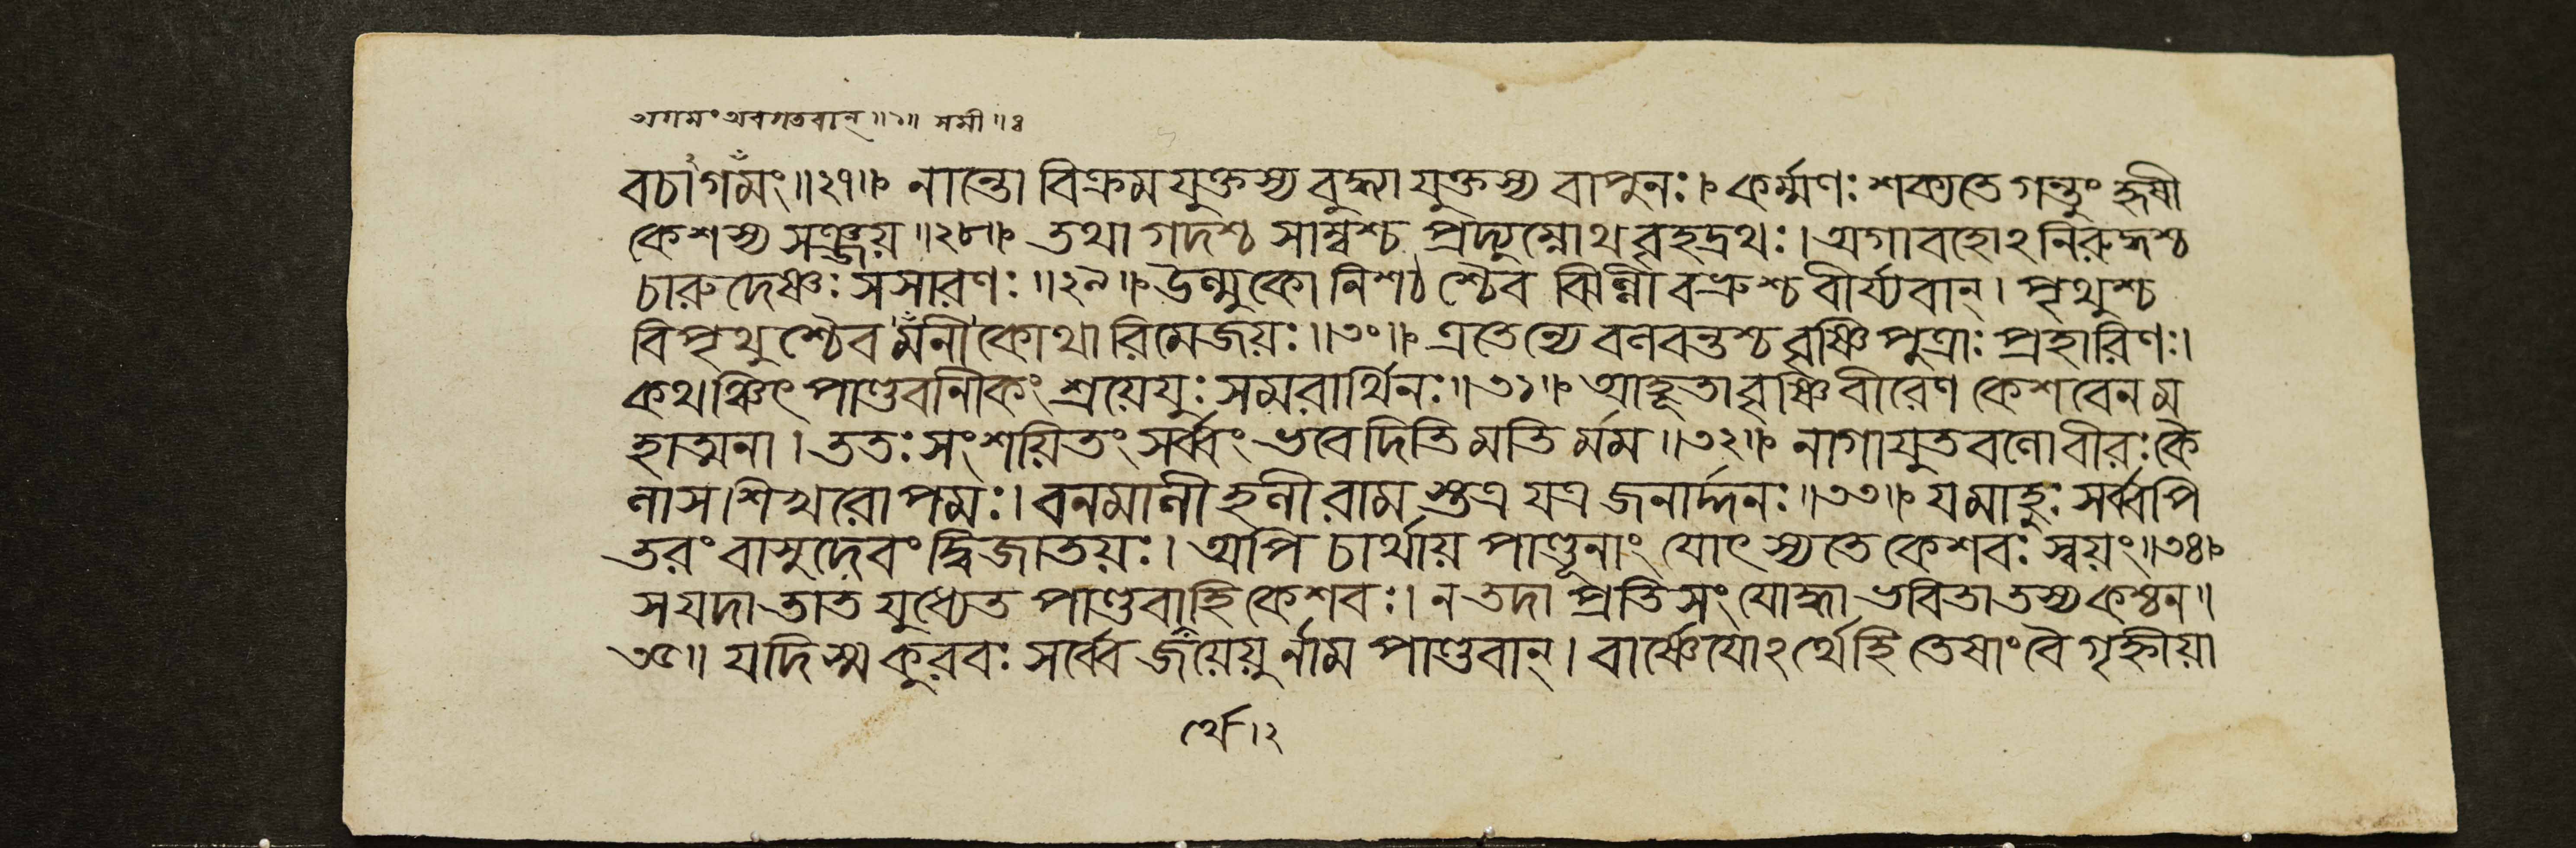 অগমং অবগতবান্ ॥১॥ সমী ॥৪
বচাগমং॥২৭॥ নান্তো বিক্রমযুক্তস্য বুদ্ধ্যা যুক্তস্য বাপুনঃ। কর্ম্মণঃ শক্যতে গন্তুং হৃষী
কেশস্য সঞ্জয়॥২৮॥ তথা গদশ্চ সাম্বশ্চ প্রদ্যুম্নোথ বৃহদ্রথঃ। অগাবহোঽনিরুদ্ধশ্চ
চারুদেষ্ণঃ সসারণঃ॥২৯॥ উন্মুকো নিশঠশ্চৈব ঝিল্লী বভ্রুশ্চ বীর্য্যবান্। পৃথুশ্চ
বিপৃথুশ্চৈব মনীকোথারিমেজয়ঃ॥৩০॥ এতেন্যে বলবন্তশ্চ বৃষ্ণিপুত্রাঃ প্রহারিণঃ।
কথঞ্চিৎ পাণ্ডবানীকং শ্রয়েযুঃ সমরার্থিনঃ॥৩১॥ আহূতা বৃষ্ণিবীরেণ কেশবেন ম
হাত্মনা। ততঃ সংশয়িতং সর্ব্বং ভবেদিতি মতির্মম॥৩২॥ নাগাযুতবলো বীরঃ কৈ
লাসশিখরোপমঃ। বনমালী হলী রামস্তত্র যত্র জনার্দ্দনঃ॥৩৩॥ যমাহুঃ সর্ব্বপি
তরং বাসুদেবং দ্বিজাতয়ঃ। অপি চার্থায় পাণ্ডূনাং যোৎস্যতে কেশবঃ স্বয়ং॥৩৪॥
স যদা তাত যুধ্যেত পাণ্ডবান্হি কেশবঃ। ন তদা প্রতিসংযোদ্ধা ভবিতা তস্য কশ্চন॥
৩৫॥ যদি স্ম কুরবঃ সর্ব্বে জয়েয়ুর্নাম পাণ্ডবান্। বার্ষ্ণেযোঽর্থে হি তেষাং বৈ গৃহ্ণীয়া
র্থে।২